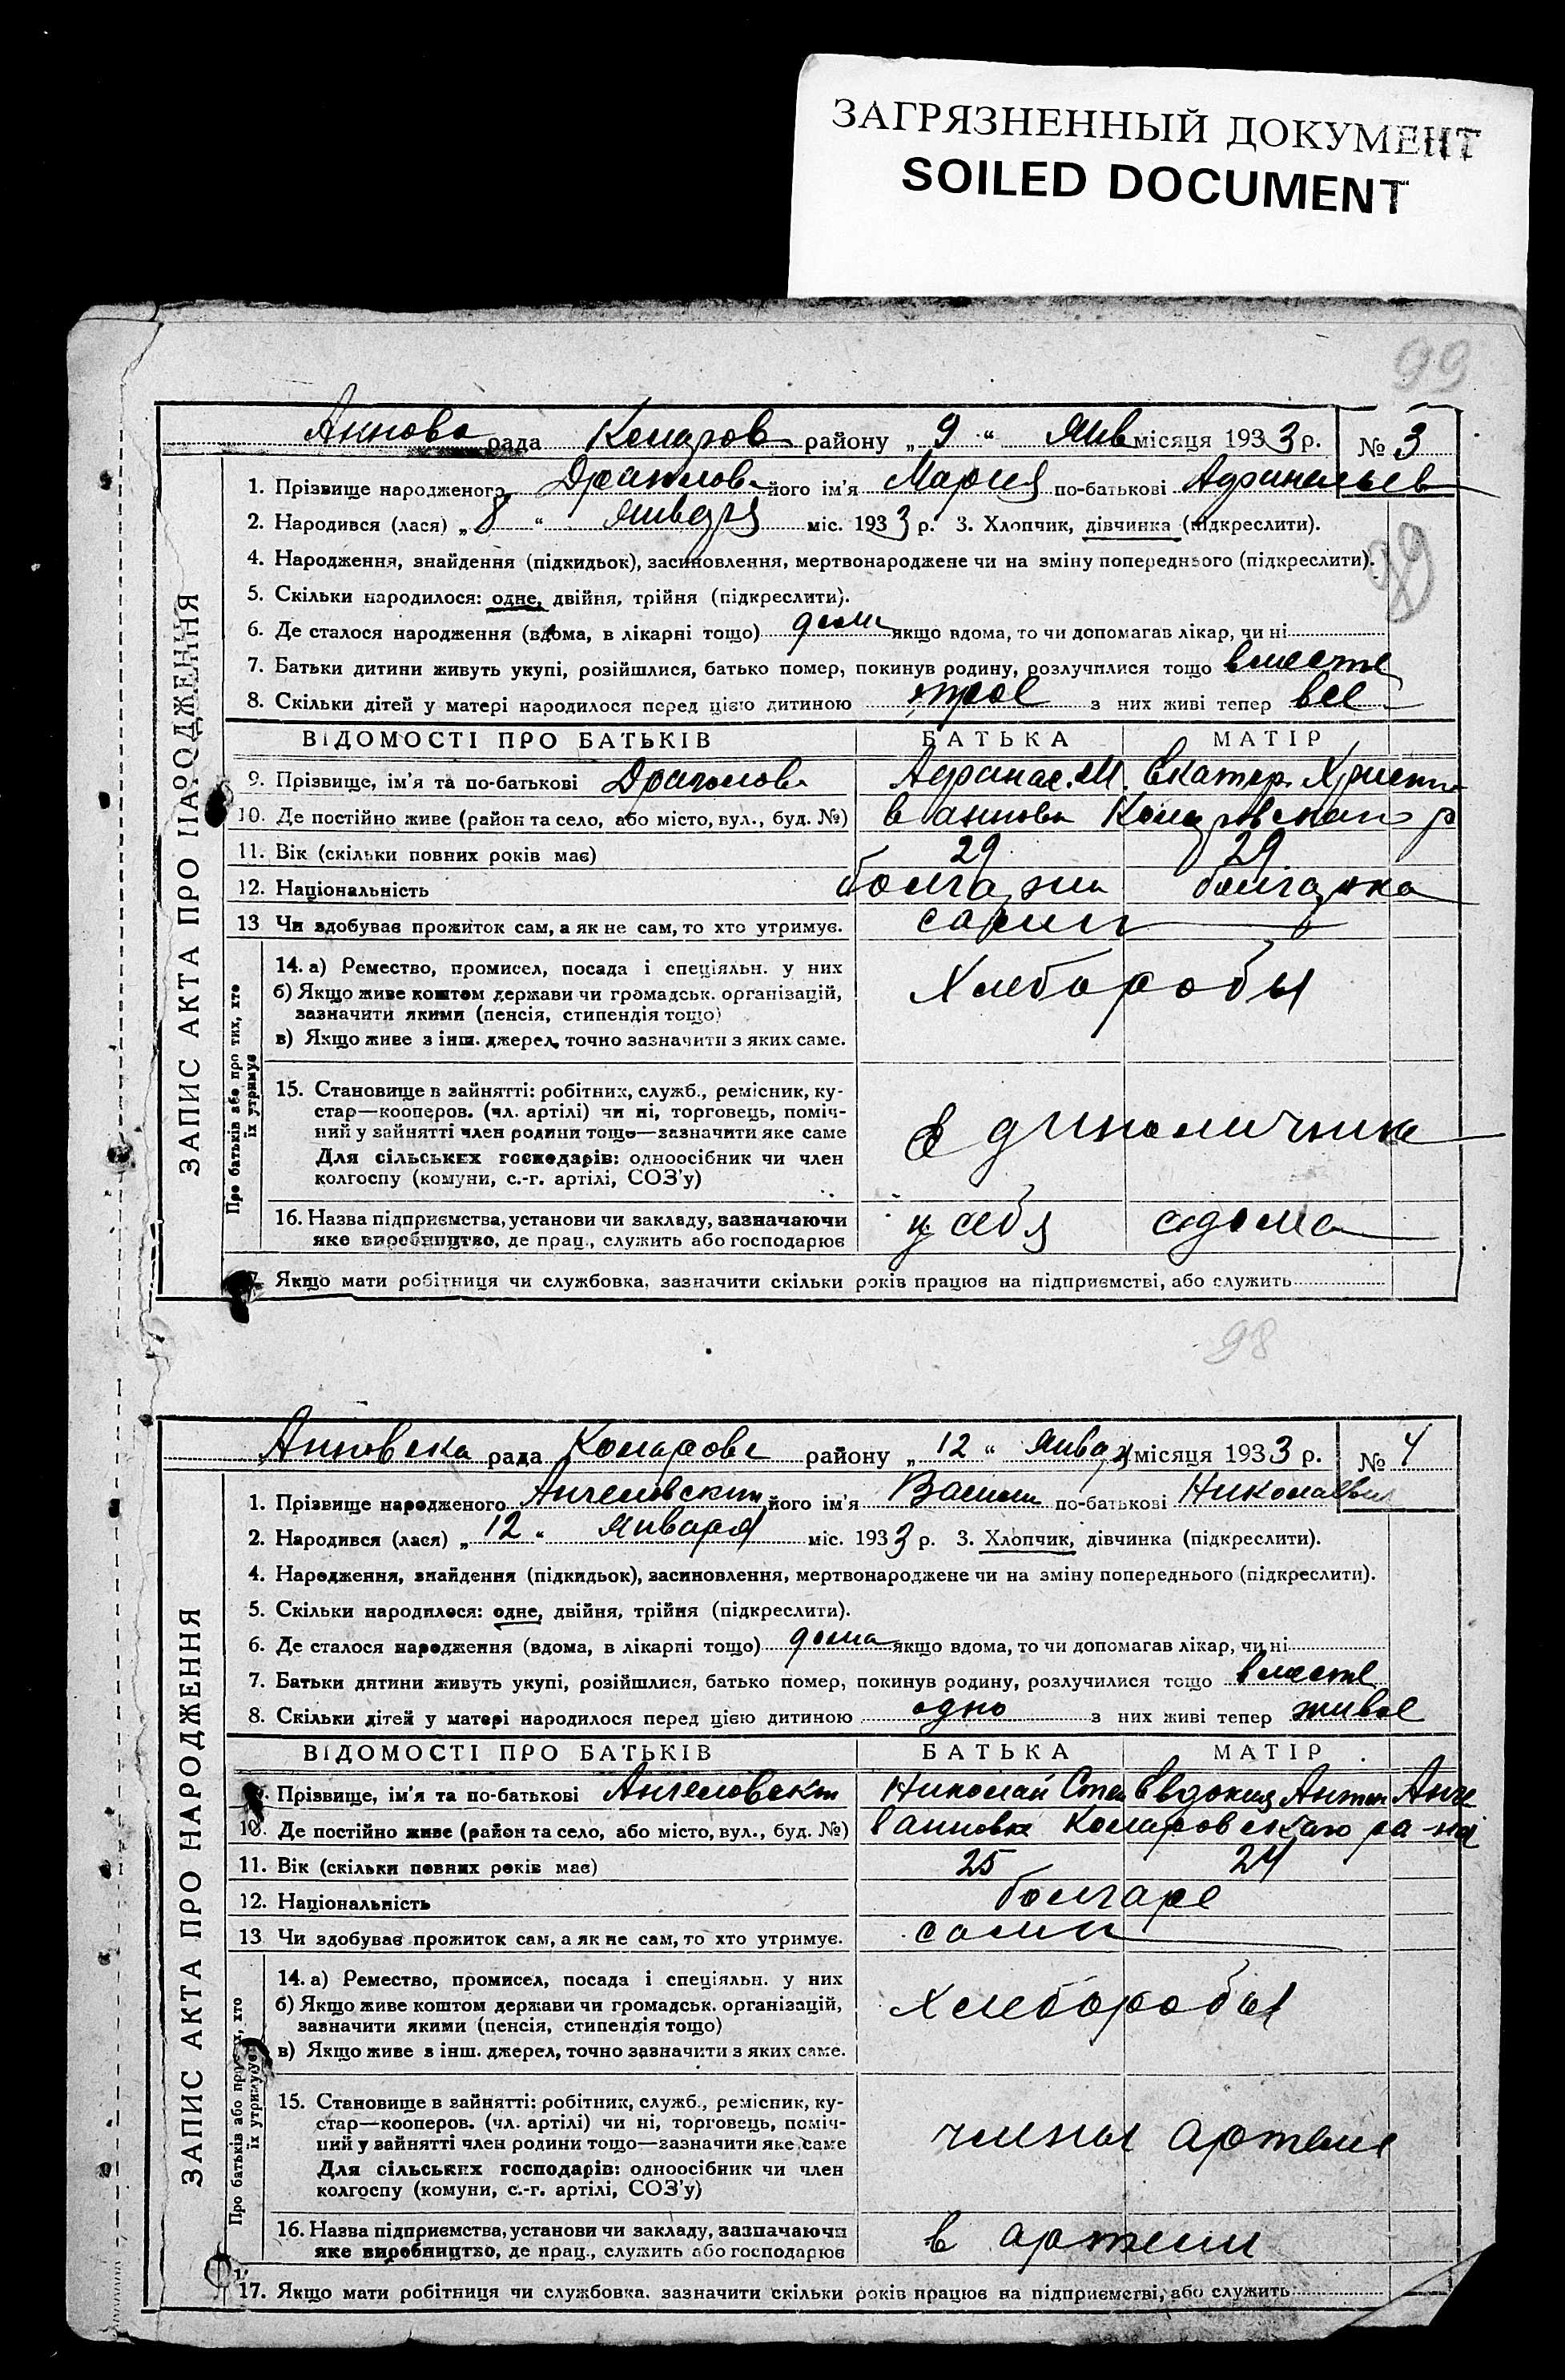 ЗАГРЯЗНЕННЫЙ ДОКУМЕНТ
SOILED DOCUMENT
99
рада району „ 9 “ Янв місяця 1933 р. № 3
1. Прізвище народженого його ім'я Мария по-батькові
2. Народився (лася) „ 8 “ Января міс. 1933 р. 3. Хлопчик, дівчинка (підкреслити).
99
4. Народження, знайдення (підкидьок), засиновлення, мертвонароджене чи на зміну попереднього (підкреслити).
5. Скільки народилося: одне, двійня, трійня (підкреслити).
6. Де сталося народження (вдома, в лікарні тощо) дома якщо вдома, то чи допомагав лікар, чи ні
7. Батьки дитини живуть укупі, розійшлися, батько помер, покинув родину, розлучилися тощо вместе
8. Скільки дітей у матері народилося перед цією дитиною трое з них живі тепер все
ВІДОМОСТІ ПРО БАТЬКІВ БАТЬКА МАТІР
9. Прізвище, ім'я та по-батькові Екатер.
10. Де постійно живе (район та село, або місто, вул., буд. №)
11. Вік (скільки повних років має) 29 29
12. Національність болгарин болгарка
13 Чи здобував прожиток сам, а як не сам, то хто утримує. сами
14. а) Ремество, промисел, посада і спеціяльн. у них Хлеборобы
б) Якщо живе коштом держави чи громадськ. організацій,
зазначити якими (пенсія, стипендія тощо)
в) Якщо живе з інш. джерел, точно зазначити з яких саме.
15. Становище в зайнятті: робітник, служб., ремісник, ку-
стар—кооперов. (чл. артілі) чи ні, торговець, поміч-
ний у зайнятті член родини тощо—зазначити яке саме
Для сільських господарів: одноосібник чи член
колгоспу (комуни, с.-г. артілі, СОЗ'у)
16. Назва підприємства, установи чи закладу, зазначаючи у себя
яке виробництво, де прац., служить або господарює
Якщо мати робітниця чи службовка, зазначити скільки років працює на підприємстві, або служить
ЗАПИС АКТА ПРО НАРОДЖЕННЯ
Про батьків або про тих, хто
їх утримує
98
Анновска рада району „ 12 “ Января місяця 1933 р. № 4
1. Прізвище народженого Ангеловский його ім'я по-батькові
2. Народився (лася) „ 12 “ Января міс. 1933 р. 3. Хлопчик, дівчинка (підкреслити).
4. Народження, знайдення (підкидьок), засиновлення, мертвонароджене чи на зміну попереднього (підкреслити).
5. Скільки народилося: одне, двійня, трійня (підкреслити).
6. Де сталося народження (вдома, в лікарні тощо) дома якщо вдома, то чи допомагав лікар, чи ні
7. Батьки дитини живуть укупі, розійшлися, батько помер, покинув родину, розлучилися тощо вместе
8. Скільки дітей у матері народилося перед цією дитиною одно з них живі тепер живое
ВІДОМОСТІ ПРО БАТЬКІВ БАТЬКА МАТІР
Прізвище, ім'я та по-батькові Николай Антон
10. Де постійно живе (район та село, або місто, вул., буд. №)
11. Вік (скільки повних років має) 25 24
12. Національність болгаре
13 Чи здобував прожиток сам, а як не сам, то хто утримує. сами
14. а) Ремество, промисел, посада і спеціяльн. у них хлеборобы
б) Якщо живе коштом держави чи громадськ. організацій,
зазначити якими (пенсія, стипендія тощо)
в) Якщо живе з інш. джерел, точно зазначити з яких саме.
15. Становище в зайнятті: робітник, служб., ремісник, ку-
стар—кооперов. (чл. артілі) чи ні, торговець, поміч-
ний у зайнятті член родини тощо—зазначити яке саме члены артели
Для сільських господарів: одноосібник чи член
колгоспу (комуни, с.-г. артілі, СОЗ'у)
16. Назва підприємства, установи чи закладу, зазначаючи в артели
яке виробництво, де прац., служить або господарює
17. Якщо мати робітниця чи службовка, зазначити скільки років працює на підприємстві, або служить
ЗАПИС АКТА ПРО НАРОДЖЕННЯ
Про батьків або про тих, хто
їх утримує